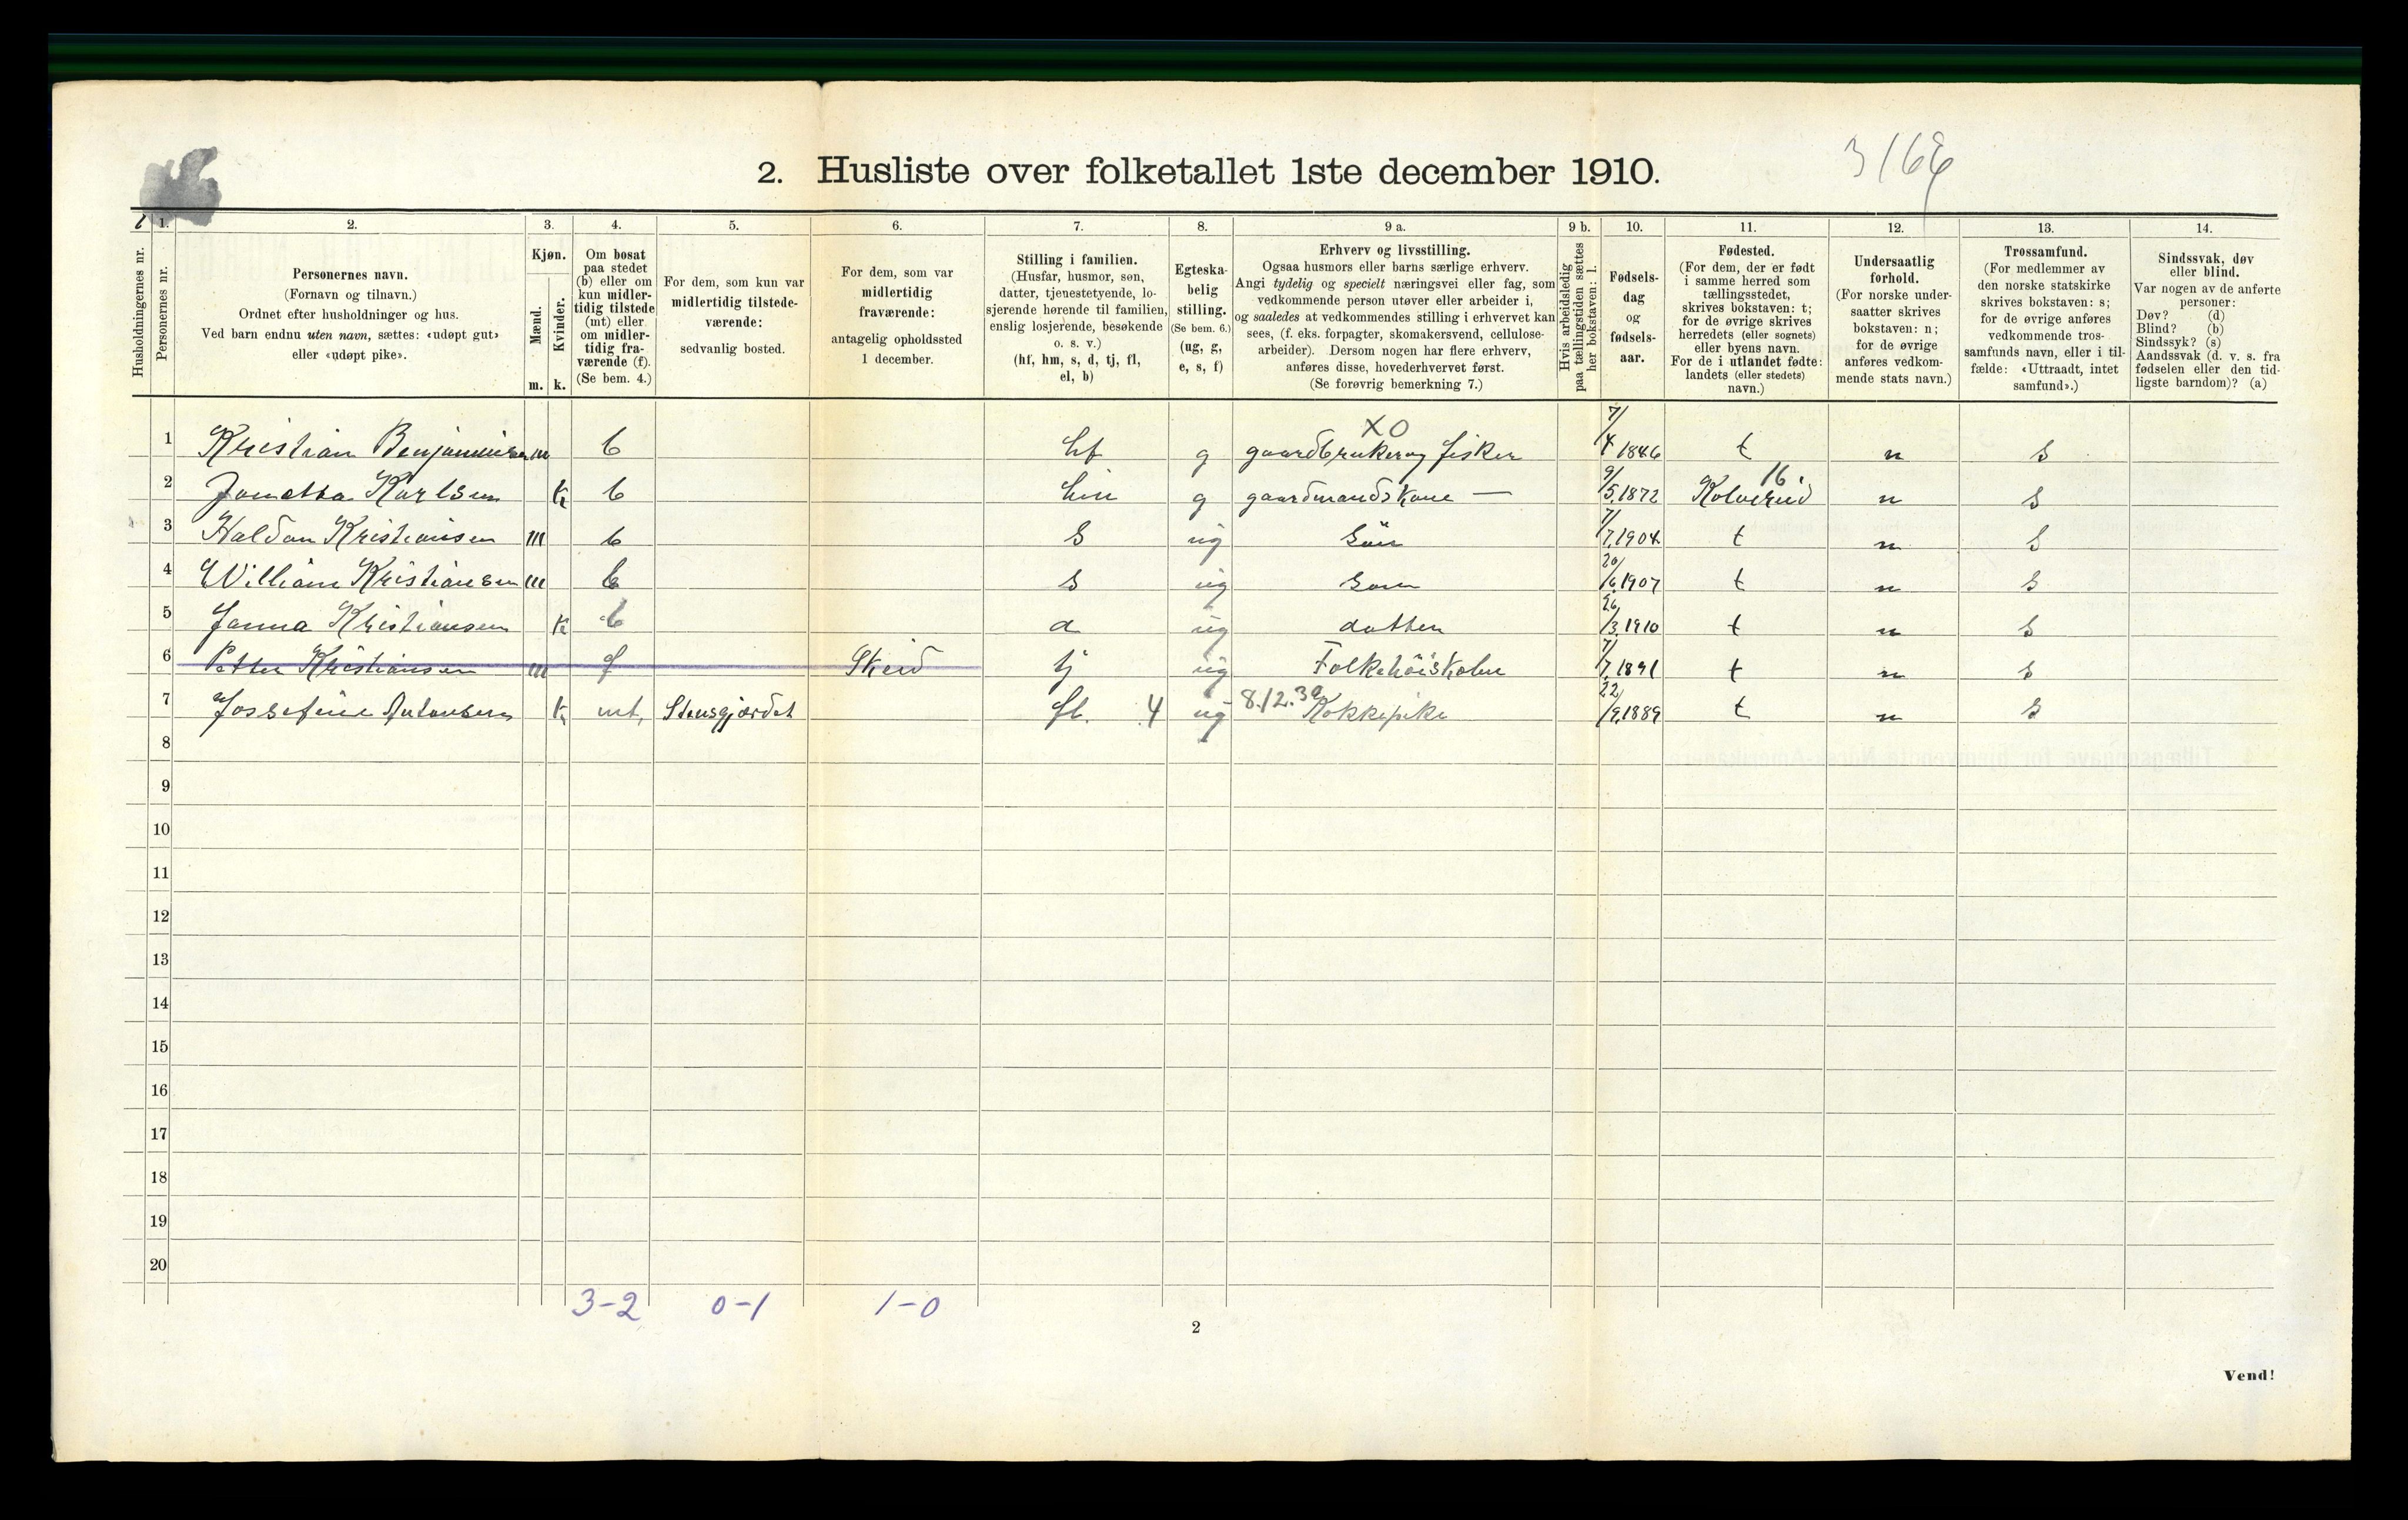 3166
2. Husliste over folketallet 1ste december 1910.
1. 2. 3. 4. 5. 6. 7. 8. 9 a. 9 b. 10. 11. 12. 13. 14.
Husholdningernes nr.
Personernes nr.
Personernes navn.
(Fornavn og tilnavn.)
Ordnet efter husholdninger og hus.
Ved barn endnu uten navn, sættes: «udøpt gut»
eller «udøpt pike».
Kjøn.
Mænd.
Kvinder.
m. k.
Om bosat
paa stedet
(b) eller om
kun midler-
tidig tilstede
(mt) eller
om midler-
tidig fra-
værende (f).
(Se bem. 4.)
For dem, som kun var
midlertidig tilstede-
værende:
sedvanlig bosted.
For dem, som var
midlertidig
fraværende:
antagelig opholdssted
1 december.
Stilling i familien.
(Husfar, husmor, søn,
datter, tjenestetyende, lo-
sjerende hørende til familien,
enslig losjerende, besøkende
o. s. v.)
(hf, hm, s, d, tj, fl,
el, b)
Egteska-
belig
stilling.
(Se bem. 6.)
(ug, g,
e, s, f)
Erhverv og livsstilling.
Ogsaa husmors eller barns særlige erhverv.
Angi tydelig og specielt næringsvei eller fag, som
vedkommende person utøver eller arbeider i,
og saaledes at vedkommendes stilling i erhvervet kan
sees, (f. eks. forpagter, skomakersvend, cellulose-
arbeider). Dersom nogen har flere erhverv,
anføres disse, hovederhvervet først.
(Se forøvrig bemerkning 7.)
Hvis arbeidsledig
paa tællingstiden sættes
her bokstaven: l.
Fødsels-
dag
og
fødsels-
aar.
Fødested.
(For dem, der er født
i samme herred som
tællingsstedet,
skrives bokstaven: t;
for de øvrige skrives
herredets (eller sognets)
eller byens navn.
For de i utlandet fødte:
landets (eller stedets)
navn.)
Undersaatlig
forhold.
(For norske under-
saatter skrives
bokstaven: n;
for de øvrige
anføres vedkom-
mende stats navn.)
Trossamfund.
(For medlemmer av
den norske statskirke
skrives bokstaven: s;
for de øvrige anføres
vedkommende tros-
samfunds navn, eller i til-
fælde: «Uttraadt, intet
samfund».)
Sindssvak, døv
eller blind.
Var nogen av de anførte
personer:
Døv? (d)
Blind? (b)
Sindssyk? (s)
Aandssvak (d. v. s. fra
fødselen eller den tid-
ligste barndom)? (a)
XO
1 Kristian Benjaminsen m b hf g gaardbruker og fisker 7/4 1846 t n s
16
2 Jonetta Karlsen k b hm g gaardmandskone — 9/5 1872 Kolvereid n s
3 Haldan Kristiansen m b s ug Sön 7/7 1904 t n s
4 William Kristiansen m b s ug Sön 20/6 1907 t n s
5 Janna Kristiansen k b d ug datter 26/3 1910 t n s
6 Petter Kristiansen m f Skeid tj ug Folkehöiskolen 7/7 1891 t n s
7 Jossefine Antonsen k mt, Stensgjærdet fl. 4 ug 8.12.39 Kokkepike 22/9 1889 t n s
8
9
10
11
12
13
14
15
16
17
18
19
20
3-2 0-1 1-0
2
Vend!